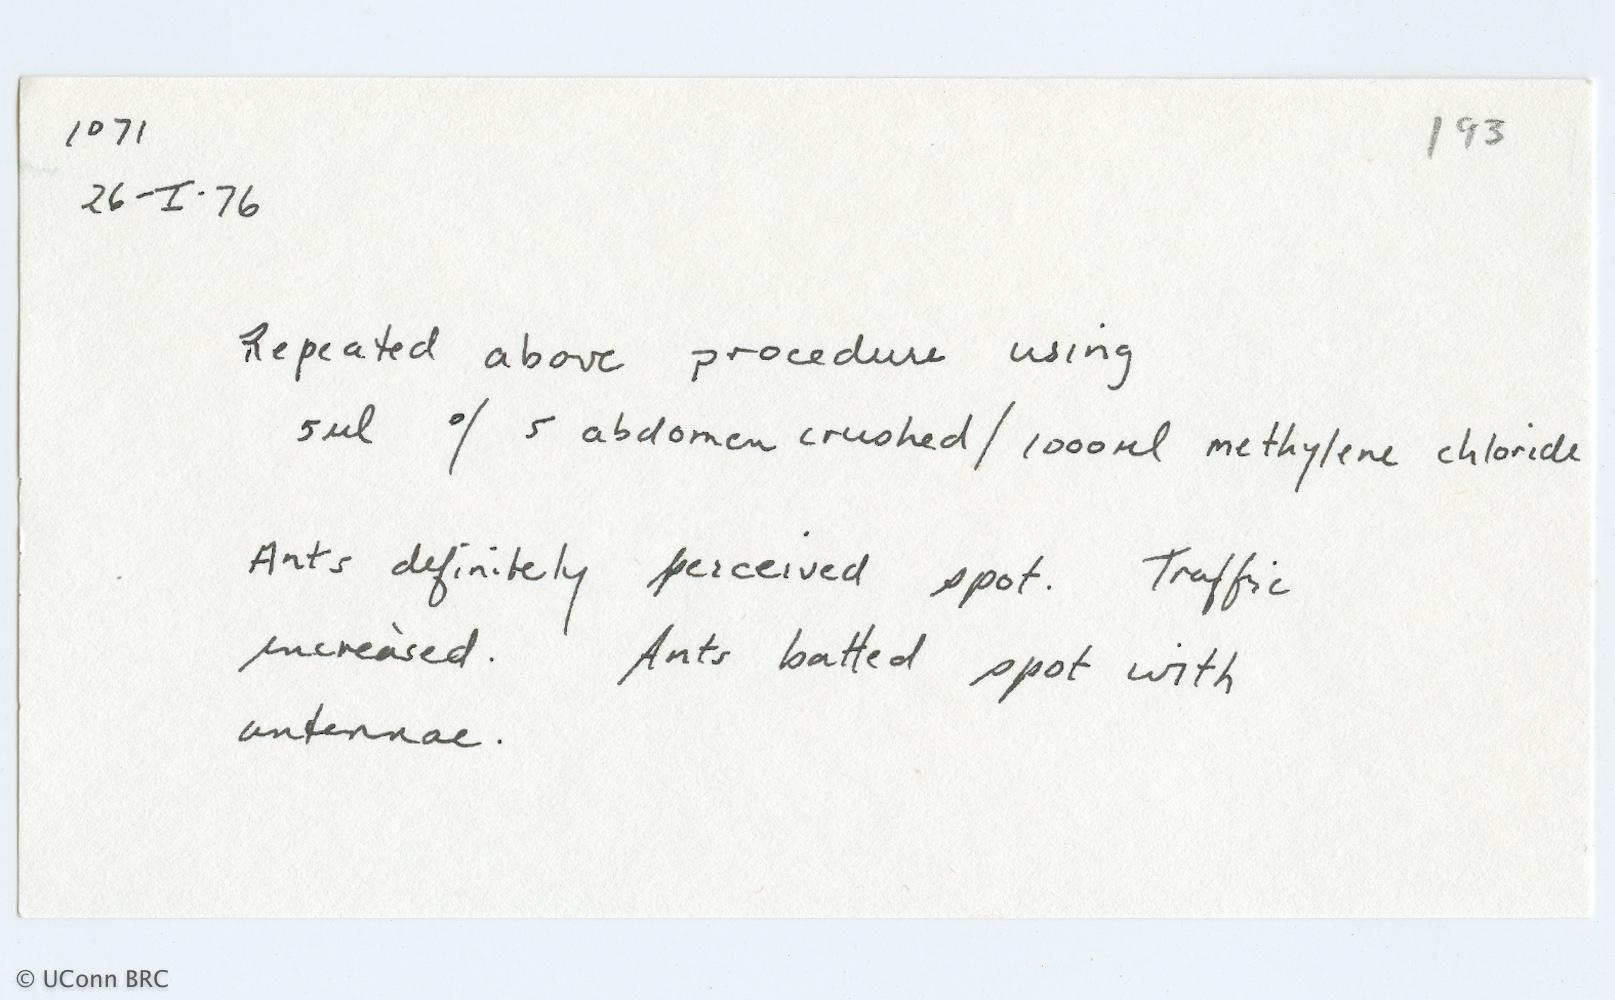 1071
193
26-I-76
Repeated above procedure using
5ul of 5 abdomen crushed/1000ul methylene chloride
Ants definitely perceived spot. Traffic
increased. Ants batted spot with
antennae.
© UConn BRC